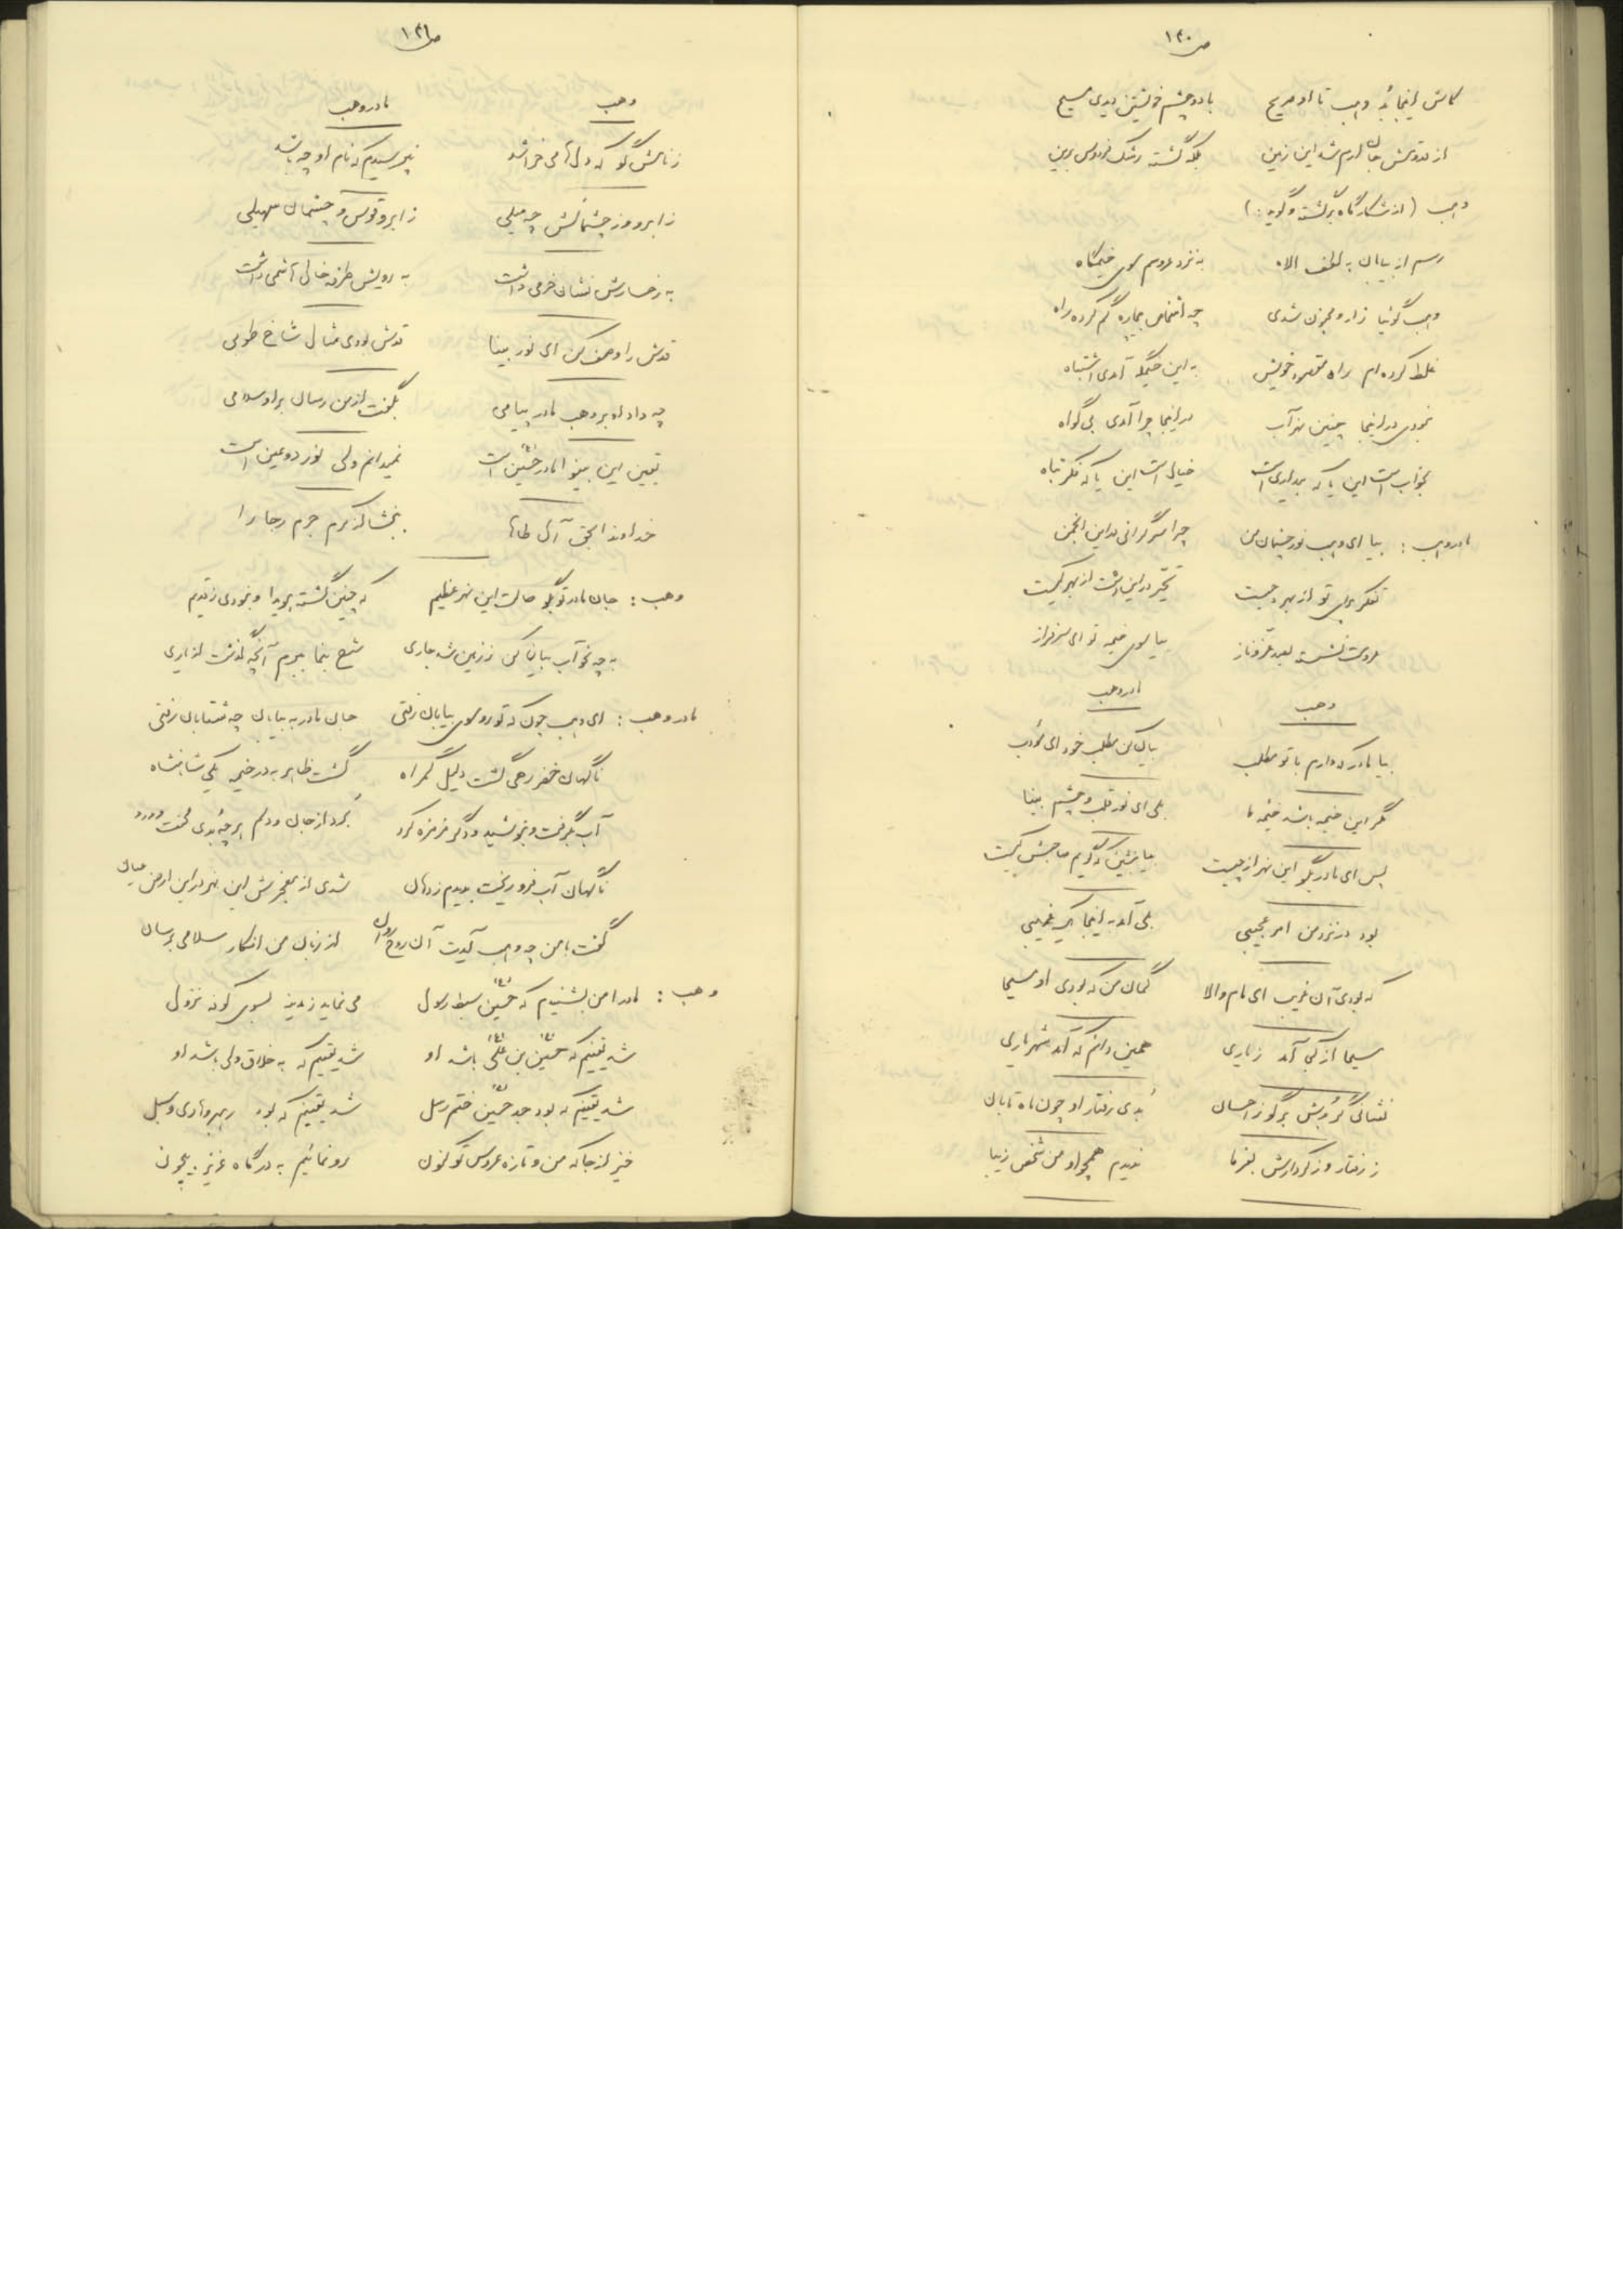 ص ۱۳۰
کاش اینجا بُد وهب تا او صریح با دو چشم خویشتن دیدی مسیح
از قدومش جان ارم شد این زمین بلکه گشته رشک فردوس برین
وهب (از شکارگاه برگشته و گوید:)
رسم از بیابان به لطف الاه به نزد عروسم سوی خیمگاه
وهب گوئیا زار و مجنون شدی چه اشخاص بیچاره گم کرده راه
غلط کرده ام راه مقصود خویش به این خیمگه آمدی اشتباه
نبودی در اینجا چنین نهر آب در اینجا چرا آمدی بی گواه
بخواب است این یا که بیداری است خیال است این یا که فکر تباه
مادر وهب : بیا ای وهب نور چشمان من چرا سرگرانی در این انجمن
تفکر برای تو از بهر چیست تحیر در این دشت از بهر کیست
عروست نشسته بصد عز و ناز بیا سوی خیمه تو ای سرفراز
وهب مادر وهب
بیا مادر که دارم با تو مطلب بیان کن مطلب خود ای مُودب
مگر این خیمه باشد خیمه ما بلی ای نور قلب و چشم بینا
پس ای مادر بگو این نهر از چیست بیا بنشین که گویم صاحبش کیست
بود در نزد من امر عجیبی بلی آمد به اینجا یک غریبی
که بودی آن غریب ای مام والا گمان من که بودی او مسیحا
مسیحا از کی آمد زیاری همین دانم که آمد شهریاری
نشانی گر بُدش برگو ز احسان بُدی رفتار او چون ماه تابان
ز رفتار و ز کردارش بفرما ندیدم همچو او من شخص زیبا
ص ۱۳۱
وهب مادر وهب
ز نامش گو که دلها می خراشد نپرسیدم که نام او چه باشد
ز ابرو وز چشمانش چه میلی ز ابرو قوس و چشمان سهیلی
به رخسارش نشان خرمی داشت به رویش طرفه خال هاشمی داشت
قدش را وصف کن ای نور بینا قدش بودی مثال شاخ طوبی
چه داد او بر وهب مادر پیامی بگفت از من رسان بر او سلامی
یقین این بینوا مادر حسین است نمیدانم ولی نور دو عین است
خداوندا بحق آل طاها ببخشا از کرم جرم رجا را
وهب : جان مادر تو بگو حالت این نهر عظیم که چنین گشته هویدا و نبودی ز قدیم
به چه نحو آب بیان کن ز زمین شد جاری شرح بنما ببرم آنچه گذشت از یاری
مادر وهب : ای وهب چون که تو رو سوی بیابان رفتی جان مادر به بیابان چه شتابان رفتی
ناگهان خضر رهی گشت دلیل گمراه گشت ظاهر به در خیمه یکی شاهنشاه
آب بگرفت و بنوشید و دگر مزمزه کرد بُرد از جان و دلم هر چه بُدی محنت و درد
ناگهان آب فرو ریخت بدیدم ز دهان شدی از معجزش این نهر در این ارض عیان
گفت با من چه وهب آیدت آن روح روان از زبان من افکار سلامی برسان
وهب : مادرا من بشنیدم که حسین سبط رسول می نماید ز مدینه بسوی کوفه نزول
شد یقینم که حسین بن علی باشد او شد یقینم که به خلاق ولی باشد او
شد یقینم که بود جد حسین ختم رسل شد یقینم که بود رهبر و هادی و سبل
خیز از جا که من و تازه عروس تو کنون رو نمائیم به درگاه عزیز بیچون